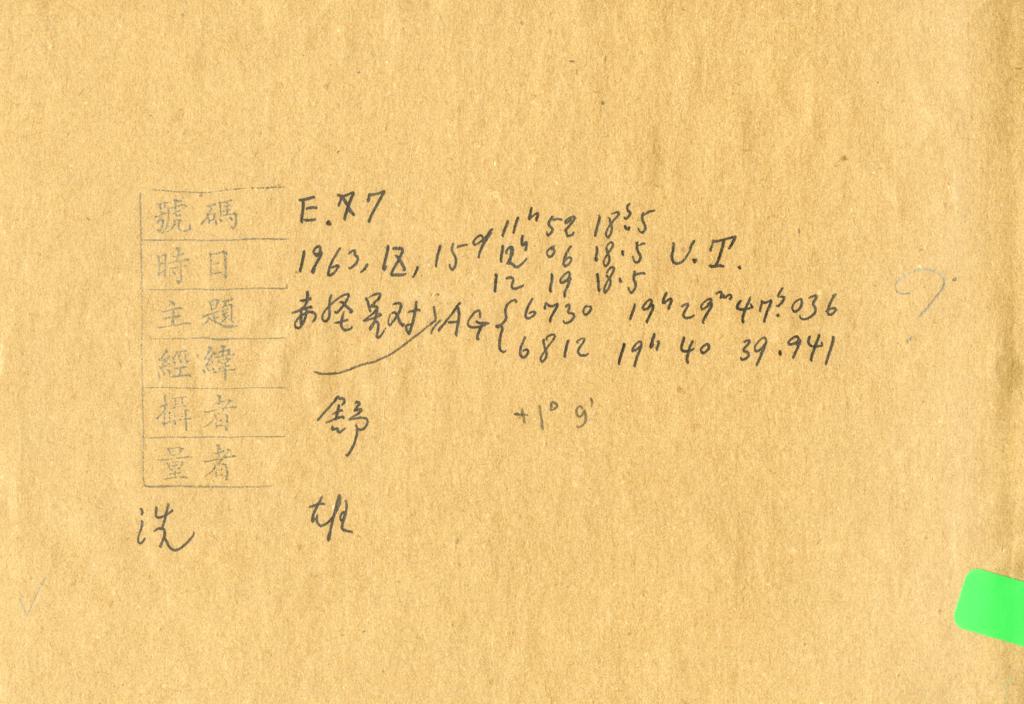 號碼 E.87
11ʰ 52 18ˢ.5
時日 1963, 9, 15ᵈ 12ʰ 06 18.5 U.T.
12 19 18.5
主題 AG { 6730 19ʰ 29ᵐ 47ˢ.036
經緯 6812 19ʰ 40 39.941
攝者 舒 +1° 9'
量者
洗 雄
?